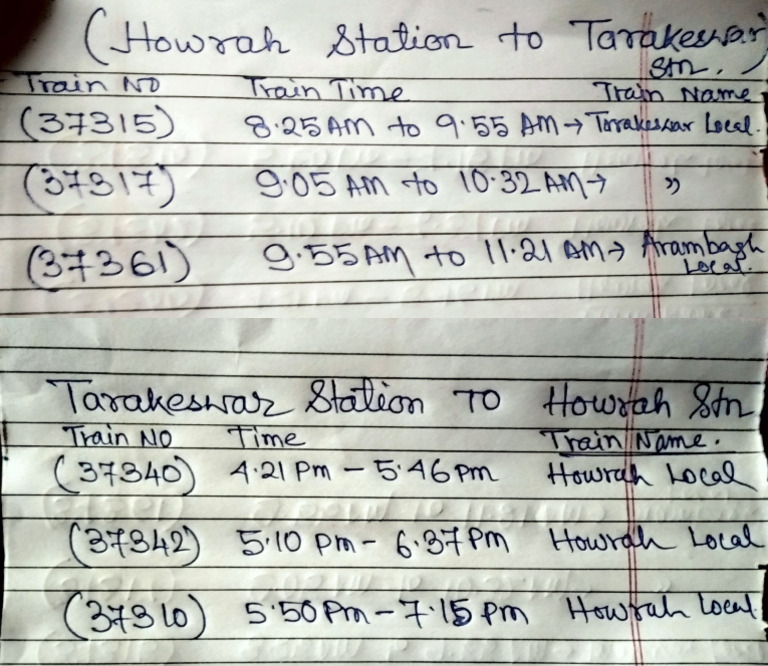 (Howrah Station to Tarakeswar Stn.)
Train NO Train Time Train Name
(37315) 8.25 AM to 9.55 AM → Tarakeswar Local.
(37317) 9.05 AM to 10.32 AM → "
(37361) 9.55 AM to 11.21 AM → Arambagh Local.
Tarakeswar Station TO Howrah Stn
Train NO Time Train Name.
(37340) 4.21 Pm - 5.46 pm Howrah Local
(37342) 5.10 pm - 6.37 Pm Howrah Local
(37310) 5.50 Pm - 7.15 pm Howrah Local.